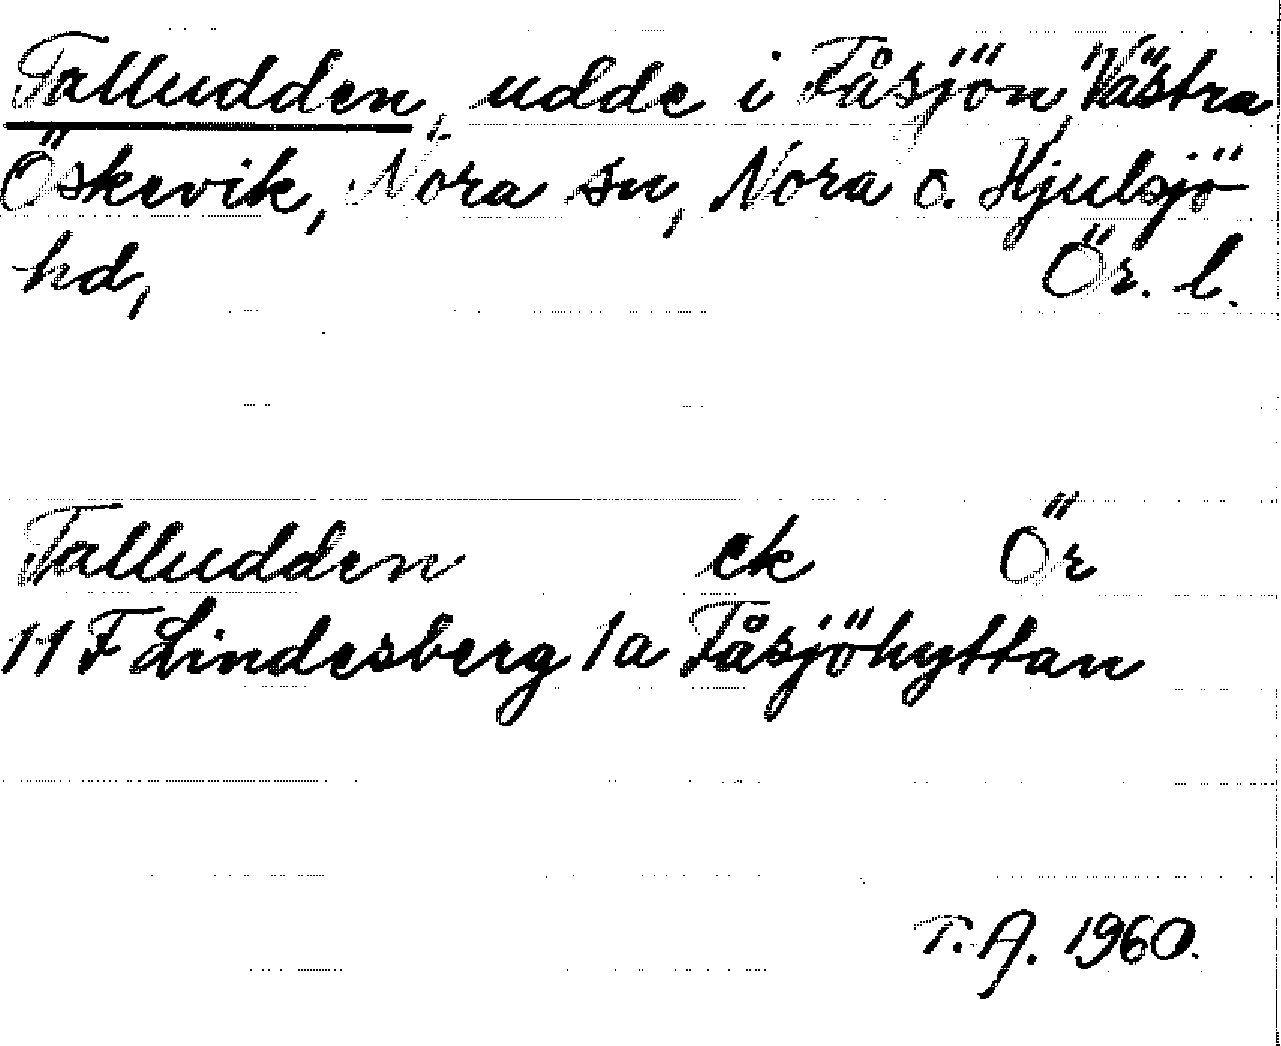 Talludden, udde i Fåsjön, Västra
Öskevik, Nora sn, Nora o. Hjulsjö
hd, Ör. l.
Talludden ek Ör
11 F Lindesberg 1a Fåsjöhyttan
T.A. 1960.